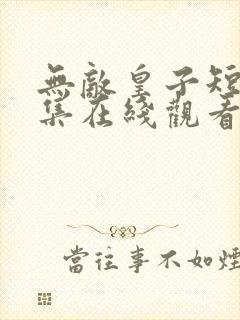 無敵皇子短
集在綫觀看
當往事不如煙